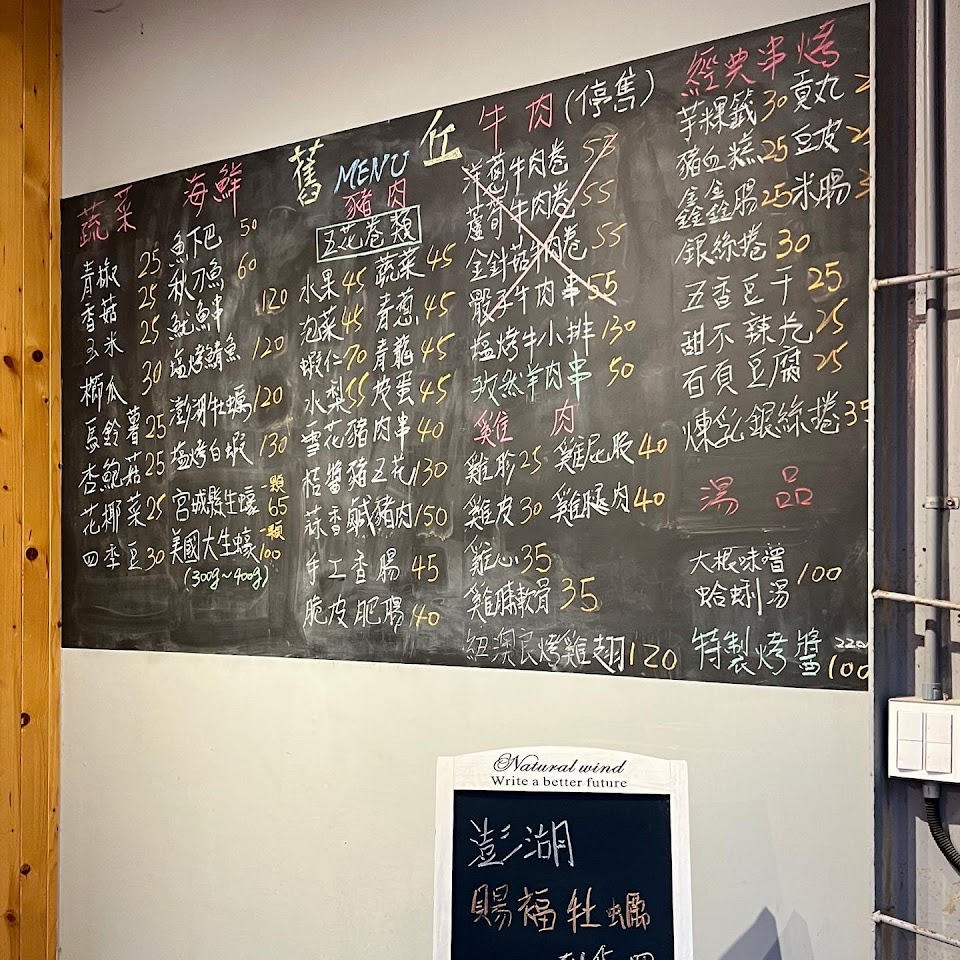 舊 丘
MENU
蔬菜
青椒 25
香菇 25
玉米 25
櫛瓜 30
馬鈴薯 25
杏鮑菇 25
花椰菜 25
四季豆 30
海鮮
魚下巴 50
秋刀魚 60
魷魚串 120
塩烤鯖魚 120
澎湖牡蠣 120
塩烤白蝦 130
宮城縣生蠔 一顆 65
美國大生蠔 一顆 100
(300g~400g)
豬肉
五花卷類
水果 45 蔬菜 45
泡菜 45 青蔥 45
蝦仁 70 青龍 45
水梨 55 皮蛋 45
雪花豬肉串 40
桔醬豬五花 130
蒜香鹹豬肉 150
手工香腸 45
脆皮肥腸 40
牛肉(停售)
洋蔥牛肉卷
蘆筍牛肉卷 55
金針菇牛肉卷 55
骰子牛肉串 55
塩烤牛小排 130
孜然羊肉串 50
雞肉
雞胗 25 雞屁股 40
雞皮 30 雞腿肉 40
雞心 35
雞膝軟骨 35
紐澳良烤雞翅 120
經典串烤
芋粿籤 30 貢丸
豬血糕 25 豆皮
鑫鑫腸 25 米腸
銀絲捲 30
五香豆干 25
甜不辣片 25
百頁豆腐 25
煉乳銀絲捲 35
湯品
大根味噌
蛤蜊湯 100
特製烤醬 100
Natural wind
Write a better future
澎湖
賜福牡蠣